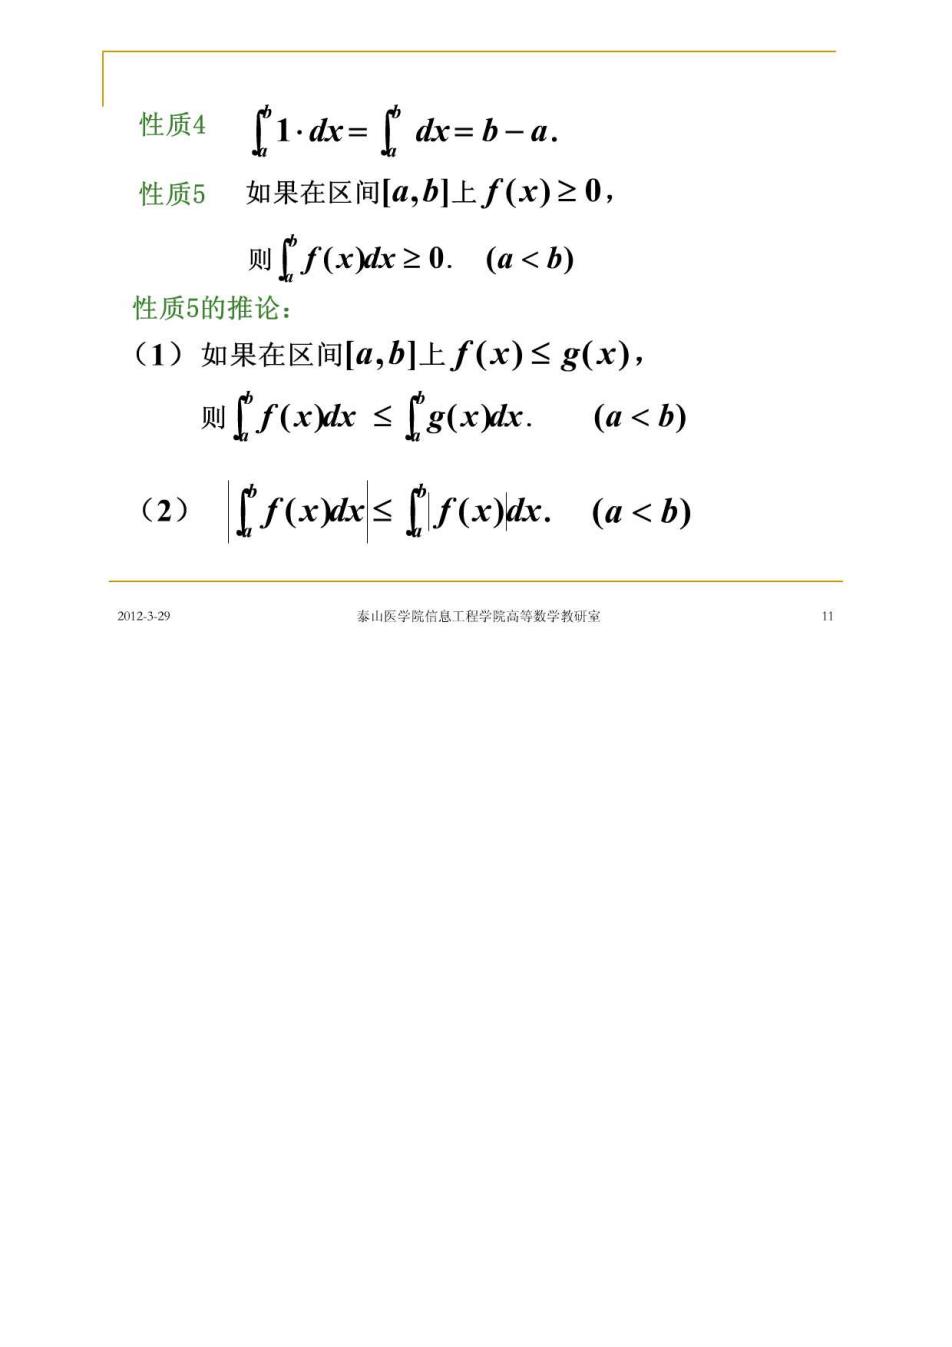 性质4 ∫_a^b 1·dx = ∫_a^b dx = b − a.
性质5 如果在区间[a,b]上 f(x) ≥ 0，
则 ∫_a^b f(x)dx ≥ 0. (a < b)
性质5的推论：
（1）如果在区间[a,b]上 f(x) ≤ g(x)，
则 ∫_a^b f(x)dx ≤ ∫_a^b g(x)dx. (a < b)
（2） |∫_a^b f(x)dx| ≤ ∫_a^b |f(x)|dx. (a < b)
2012-3-29 泰山医学院信息工程学院高等数学教研室 11